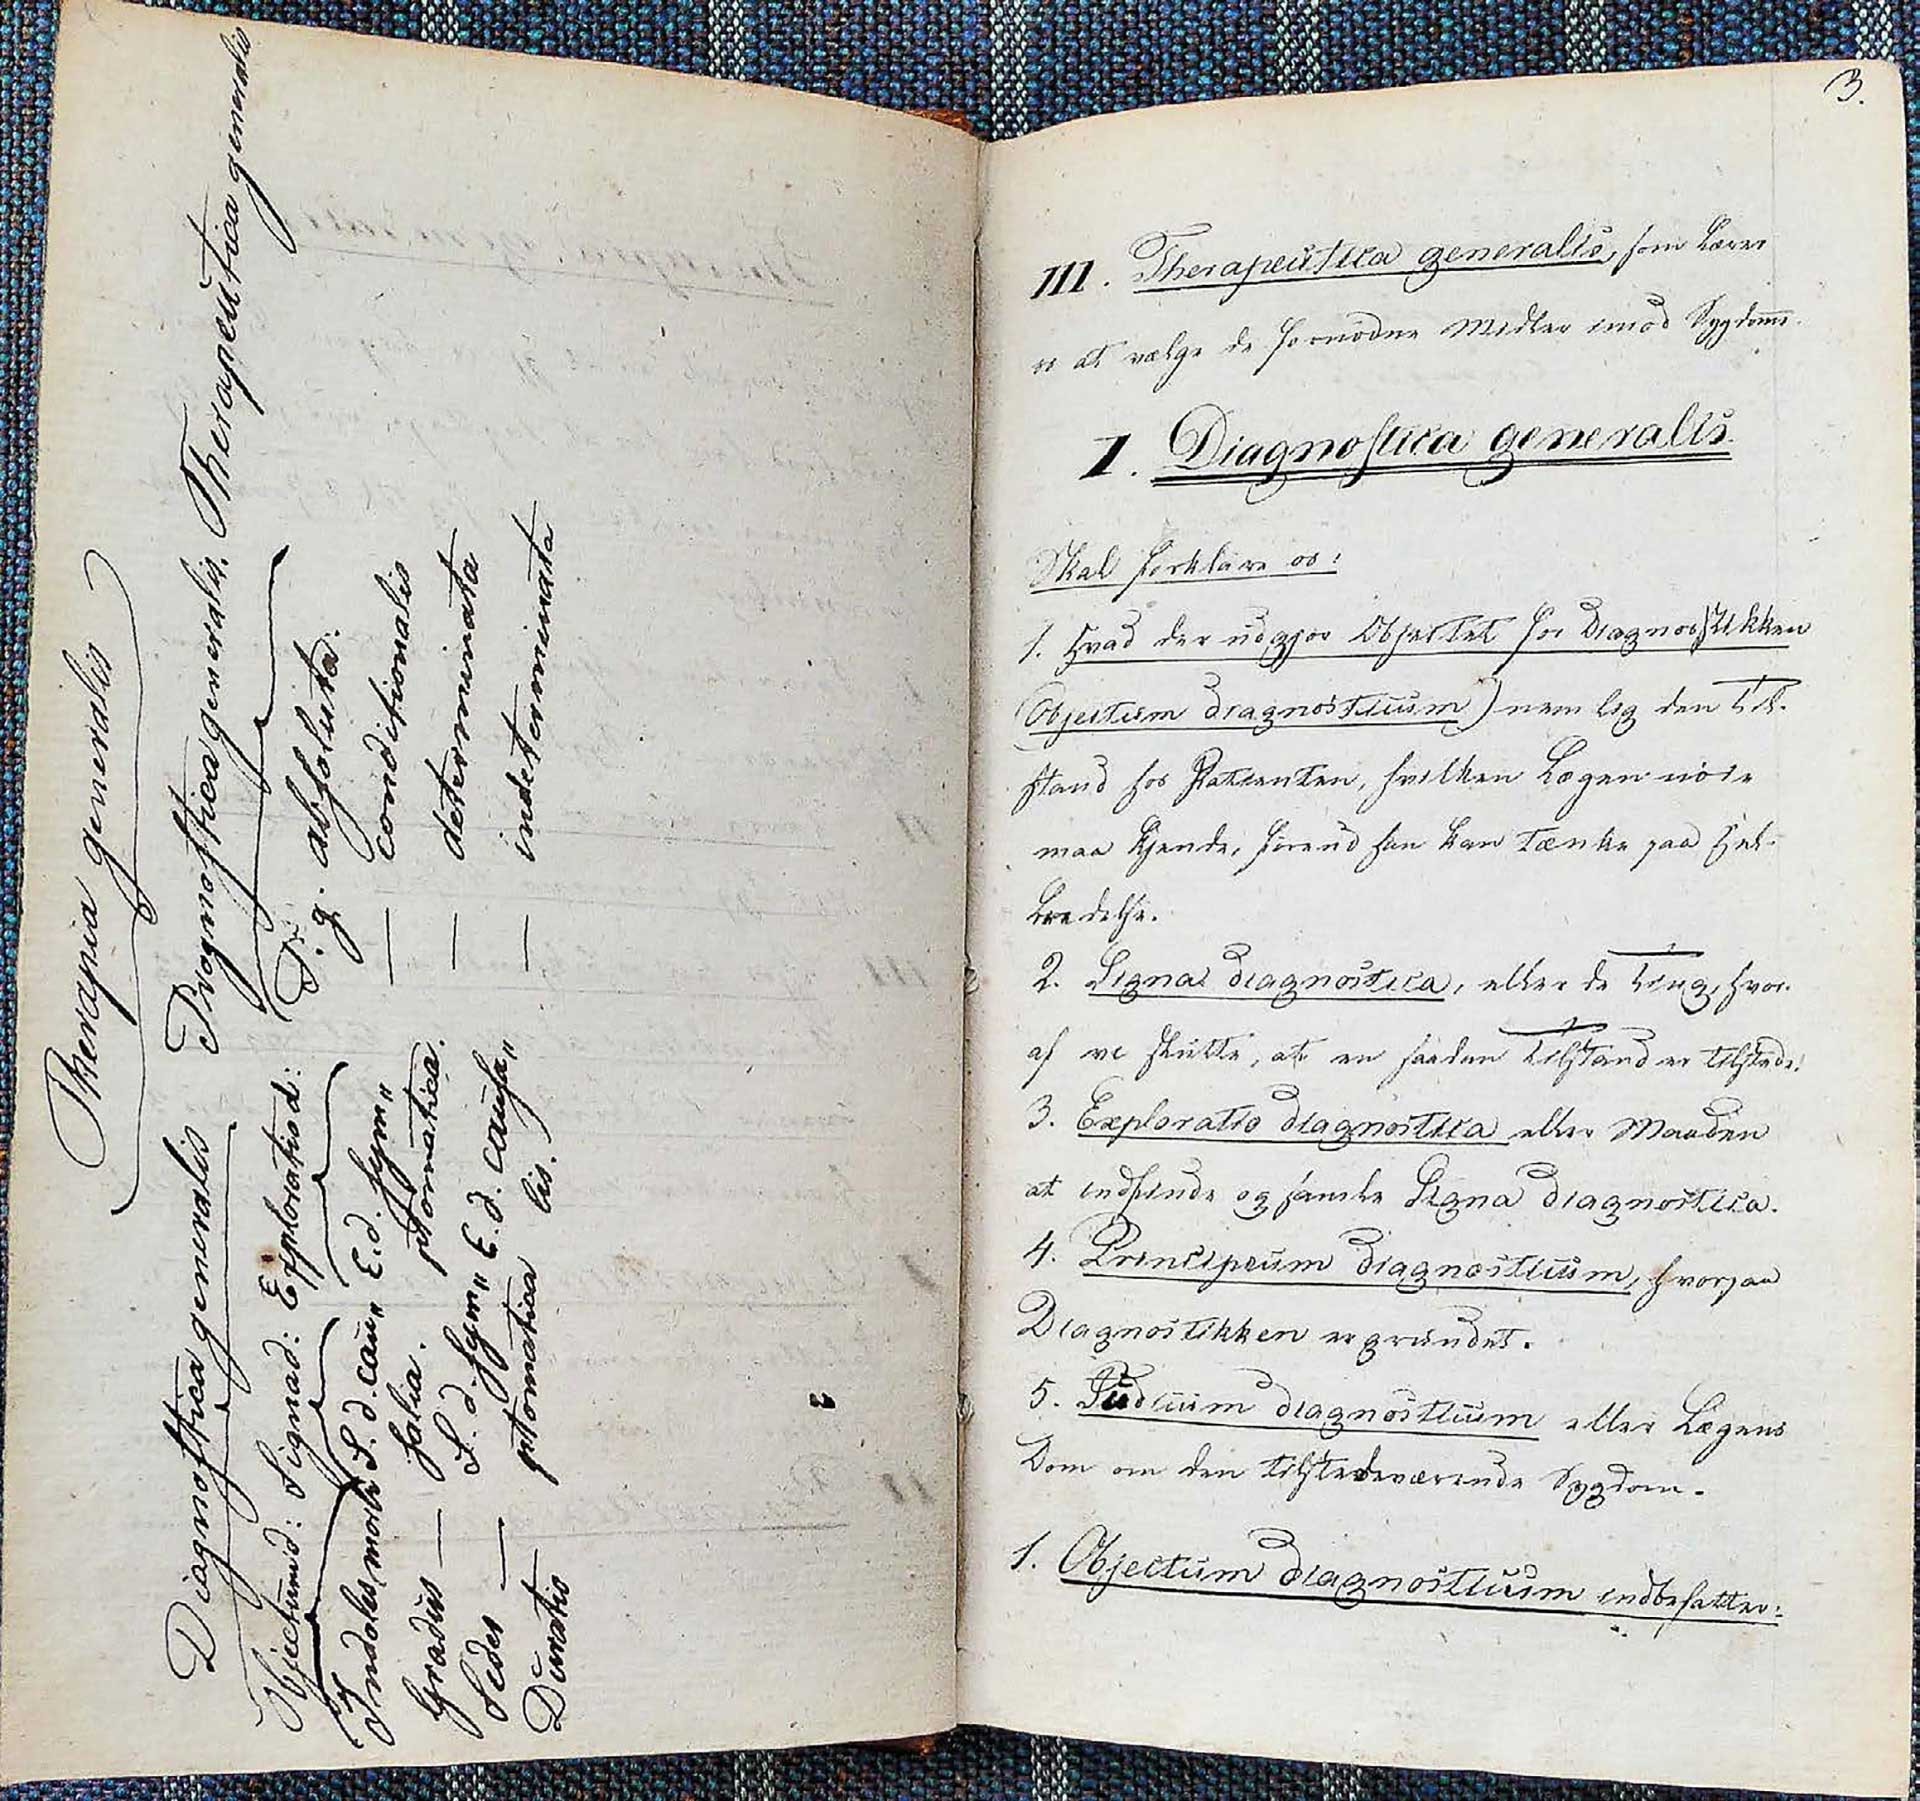 Therapia generalis
Diagnostica generalis Prognostica generalis. Therapeutica generalis
Objectumd: Signad: Exploratiod: P. g. absoluta.
Indoles morbi S. d. cau„ E. d. sym„ — conditionalis
Gradus — salia. ptomatica. — determinata
Sedes — S. d. sym„ E. d. causa„ — indeterminata
Duratio ptomatica lis.
3.
III. Therapeutica generalis, som Lærer
os at vælge de fornødne Midler imod Sygdomme.
I. Diagnostica generalis.
Skal forklare os:
1. Hvad der udgjør Objectet for Diagnostikken
(Objectum diagnosticum) nemlig den Til-
stand hos Patienten, hvilken Lægen nöie
maa kjende, förend han kan tænke paa Hel-
bredelse.
2. Signa diagnostica, eller de Ting, hvor-
af vi slutte, at en saadan Tilstand er tilstede.
3. Exploratio diagnostica eller Maaden
at indfinde og samle Signa diagnostica.
4. Principium diagnosticum, hvorpaa
Diagnostikken er grundet.
5. Judicium diagnosticum eller Lægens
Dom om den tilstedeværende Sygdom.
1. Objectum diagnosticum indbefatter: